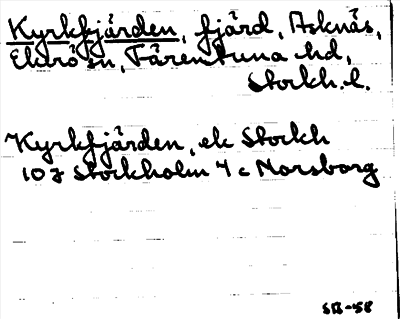 Kyrkfjärden, fjärd, Asknäs,
Ekerö sn, Färentuna hd,
Stockh. l.
Kyrkfjärden, ek Stockh
10 J Stockholm 4 c Norsborg
SB-58